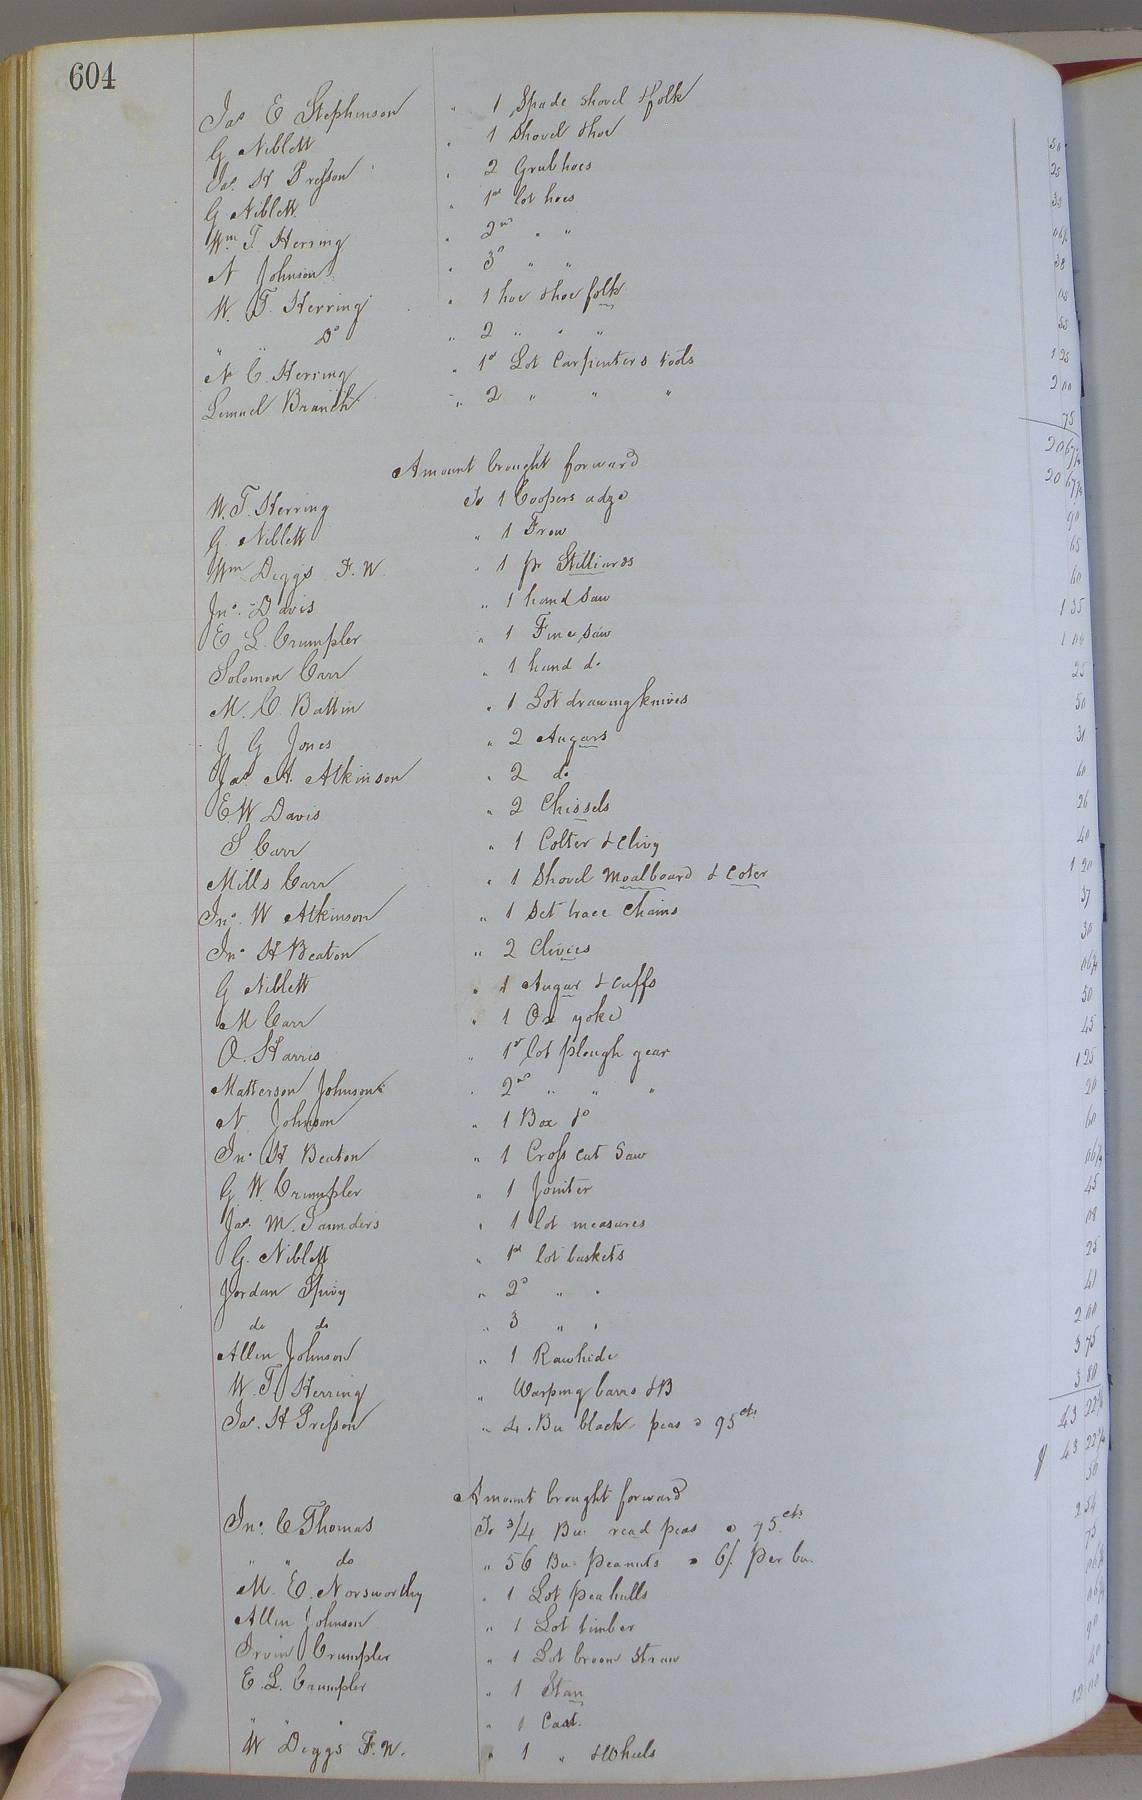 604
Jas E Stephenson " 1 Spade shovel & folk
G Niblett " 1 Shovel & hoe 50
Jas. H Presson " 2 Grubhoes 25
G Niblett " 1st lot hoes
Wm T. Herring " 2nd " " 06¼
N Johnson " 3d " " 38
W. T. Herring " 1 hoe & hoe folk
" " Do " 2 " " " 55
N C. Herring " 1st Lot Carpenters tools 1 25
Lemuel Branch " 2 " " " 2 00
75
20 67½
Amount brought forward 20 67½
W. T. Herring To 1 Coopers adze 90
G. Niblett " 1 Frow 65
Wm Diggs F. N. " 1 pr Stilliards 60
Jno. Davis " 1 hand saw 1 35
E L. Crumpler " 1 Fine saw 1 00
Solomon Carr " 1 hand do 25
M. C. Battin " 1 Lot drawing knives 50
J G Jones " 2 Augars 31
Jas A. Atkinson " 2 do 60
E. W Davis " 2 Chissels 26
S. Carr " 1 Colter & Clivy 40
Mills Carr " 1 Shovel Moalboard & Coter 1 20
Jno. W Atkinson " 1 Set trace Chains 37
Jno H Beaton " 2 Clivies 30
G Niblett " 1 Augar & cuffs 06¼
M Carr " 1 Ox yoke 50
O. Harris " 1st lot plough gear 45
Matterson Johnson " 2nd " " " 1 25
N Johnson " 1 Box do 20
Jno H Beaton " 1 Cross cut Saw 60
G. W. Crumpler " 1 Jointer 06¼
Jas. M. Saunders " 1 lot measures 45
G. Niblett " 1st lot baskets 08
Jordan Spivy " 2d " " 25
do do " 3 " " 41
Allen Johnson " 1 Rawhide 2 00
W. T. Herring " Warping barrs & B 3 75
Jas. H Presson " 4. Bu black peas @ 95 cts 3 80
43 22¼
Amount brought forward $ 43 22¼
Jno. C Thomas To 3/4 Bu read peas @ 75 cts 56
" " do " 56 Bu Peanuts @ 6/. Per bu. 254
M. E. Norsworthy " 1 Lot pea hulls 75
Allen Johnson " 1 Lot timber 06¼
Irvin Crumpler " 1 Lot broom straw 06¼
E. L. Crumpler " 1 Stan 90
" " " " 1 Cart. 40
W Diggs F. N. " 1 " & Wheels 12 00